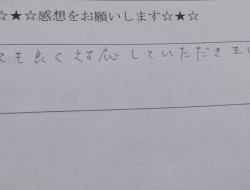 ☆★☆感想をお願いします☆★☆
ても良く対応していただきまし